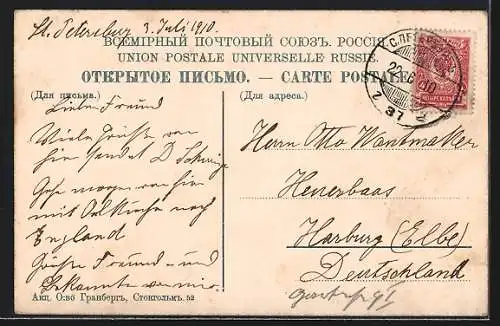 St. Petersburg 3. Juli 1910.
ВСЕМІРНЫЙ ПОЧТОВЫЙ СОЮЗЪ. РОССІЯ
UNION POSTALE UNIVERSELLE RUSSIE.
ОТКРЫТОЕ ПИСЬМО. — CARTE POSTALE
(Для письма.)
(Для адреса.)
Lieber Freund
Viele Grüße von
hier sendet D
Gehe morgen von hier
mit nach
England
Grüße Freund und
Bekannte von mir.
Акц. О:во Гранбергъ, Стокгольмъ. 52
С.ПЕТЕРБ
20 6 10
37
Herrn Otto Wantmaker
Heuerbaas
Harburg (Elbe)
Deutschland